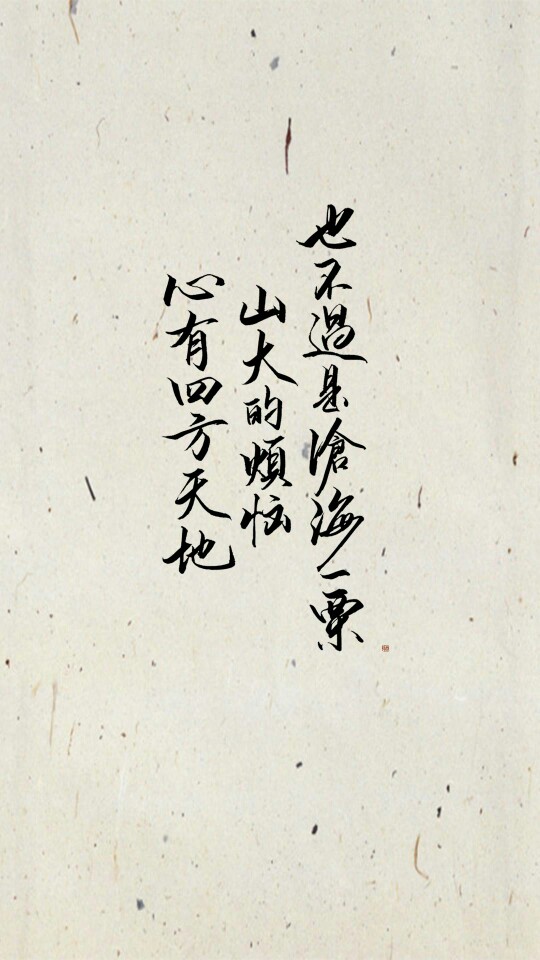 心有四方天地
山大的烦恼
也不過是滄海一粟